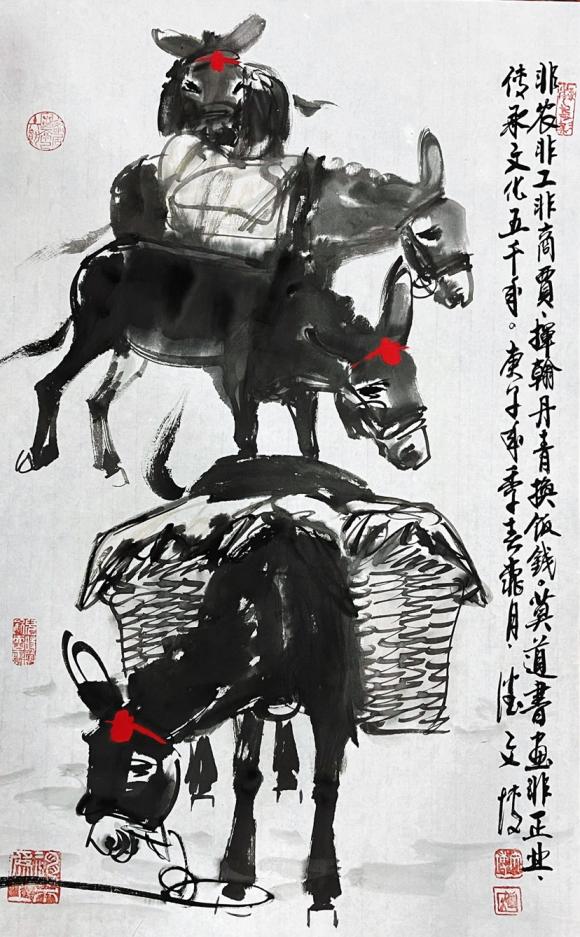 非农非工非商賈、揮翰丹青換饭錢。莫道書画非正业、
传承文化五千年。庚子年季春
月、
文